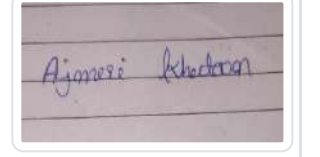 Ajmeri Khatoon